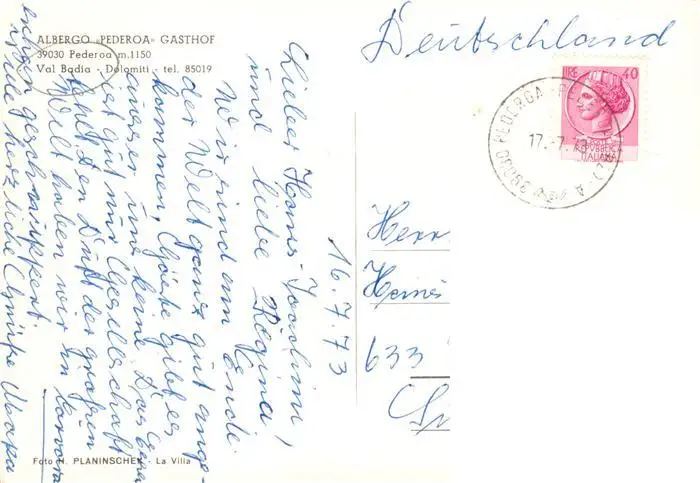 ALBERGO «PEDEROA» GASTHOF
39030 Pederoa m.1150
Val Badia - Dolomiti - tel. 85019
Deutschland
LIRE 40
POSTE
REPVBBLICA
ITALIANA
39030 PEDEROA
17.-7.73
16.7.73
Lieber Hans-Joachim,
und liebe Regina
Wir sind am Ende
der Welt ganz gut ange-
kommen, Gäste gibt es
ausser uns keine. Das
ist gut für Gesellschaft
fehlt den Duft der großen
Welt haben wir in
geschnuppert.
viele herzliche Grüße
Herr
Hein
633
Foto H. PLANINSCHEK - La Villa